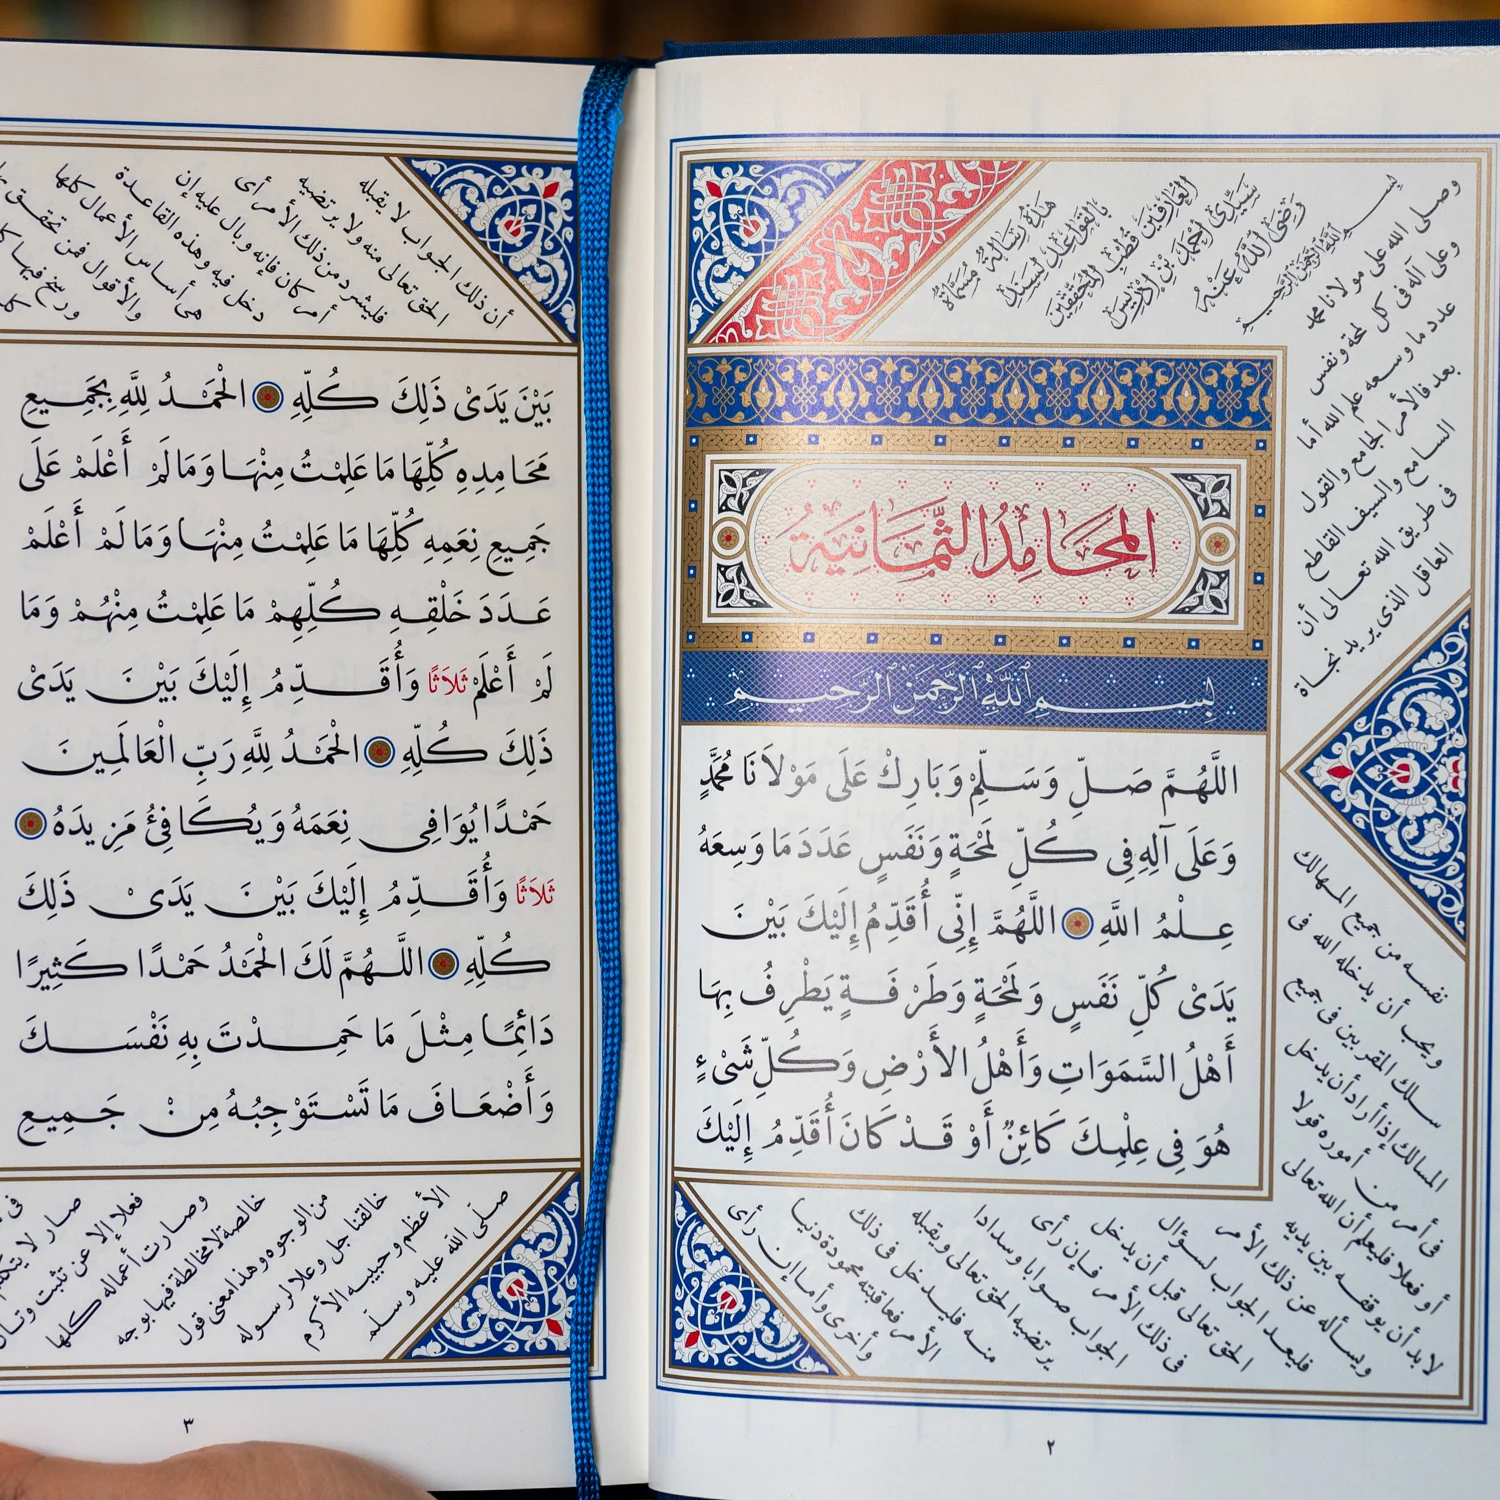 المَحَامِدُ الثَّمَانِيَةُ
بِسْمِ ٱللَّهِ ٱلرَّحْمَنِ ٱلرَّحِيمِ
اللَّهُمَّ صَلِّ وَسَلِّمْ وَبَارِكْ عَلَى مَوْلَانَا مُحَمَّدٍ
وَعَلَى آلِهِ فِى كُلِّ لَمْحَةٍ وَنَفَسٍ عَدَدَ مَا وَسِعَهُ
عِلْمُ اللَّهِ اللَّهُمَّ إِنِّى أُقَدِّمُ إِلَيْكَ بَيْنَ
يَدَىْ كُلِّ نَفَسٍ وَلَمْحَةٍ وَطَرْفَةٍ يَطْرِفُ بِهَا
أَهْلُ السَّمَوَاتِ وَأَهْلُ الأَرْضِ وَكُلِّ شَىْءٍ
هُوَ فِى عِلْمِكَ كَائِنٌ أَوْ قَدْ كَانَ أُقَدِّمُ إِلَيْكَ
بسم الله الرحمن الرحيم
وصلى الله على مولانا محمد
وعلى آله فى كل لمحة ونفس
عدد ما وسعه علم الله أما
بعد فالأمر الجامع والقول
السامع والسيف القاطع
فى طريق الله تعالى أن
العاقل الذى يريد نجاة
نفسه من جميع المهالك
ويحب أن يدخله الله فى
سلك المقربين فى جميع
المسالك إذا أراد أن يدخل
فى أمر من أموره قولا
أو فعلا فليعلم أن الله تعالى
لا بد أن يوقفه بين يديه
ويسأله عن ذلك الأمر
فليعد الجواب لسؤال
الحق تعالى قبل أن يدخل
فى ذلك الأمر فإن رأى
الجواب صوابا وسدادا
يرتضيه الحق تعالى ويقبله
منه فليدخل فى ذلك
الأمر فعاقبته محمودة دنيا
وأخرى وأما إن رأى
هَذِهِ رِسَالَةٌ مُسَمَّاةٌ
بِالقَوَاعِدِ لِسَيِّدِ
العَارِفِينَ قُطْبِ المُحَقِّقِينَ
سَيِّدِى أَحْمَدَ بْنِ إِدْرِيسَ
رَضِىَ اللَّهُ عَنْهُ
٢
أن ذلك الجواب لا يقبله
الحق تعالى منه ولا يرتضيه
فليشرد من ذلك الأمر أى
أمر كان فإنه وبال عليه إن
دخل فيه وهذه القاعدة
هى أساس الأعمال كلها
والأقوال فمن تحقق
ورسخ فيها
بَيْنَ يَدَىْ ذَلِكَ كُلِّهِ الْحَمْدُ لِلَّهِ بِجَمِيعِ
مَحَامِدِهِ كُلِّهَا مَا عَلِمْتُ مِنْهَا وَمَا لَمْ أَعْلَمْ عَلَى
جَمِيعِ نِعَمِهِ كُلِّهَا مَا عَلِمْتُ مِنْهَا وَمَا لَمْ أَعْلَمْ
عَدَدَ خَلْقِهِ كُلِّهِمْ مَا عَلِمْتُ مِنْهُمْ وَمَا
لَمْ أَعْلَمْ ثَلَاثًا وَأُقَدِّمُ إِلَيْكَ بَيْنَ يَدَىْ
ذَلِكَ كُلِّهِ الْحَمْدُ لِلَّهِ رَبِّ الْعَالَمِينَ
حَمْدًا يُوَافِى نِعَمَهُ وَيُكَافِئُ مَزِيدَهُ
ثَلَاثًا وَأُقَدِّمُ إِلَيْكَ بَيْنَ يَدَىْ ذَلِكَ
كُلِّهِ اللَّهُمَّ لَكَ الْحَمْدُ حَمْدًا كَثِيرًا
دَائِمًا مِثْلَ مَا حَمِدْتَ بِهِ نَفْسَكَ
وَأَضْعَافَ مَا تَسْتَوْجِبُهُ مِنْ جَمِيعِ
فى
صار لا
فعلا إلا عن تثبت
وصارت أعماله كلها
خالصة لا مخالطة فيها بوجه
من الوجوه وهذا معنى قول
خالقنا جل وعلا لرسوله
الأعظم وحبيبه الأكرم
صلى الله عليه وسلم
٣